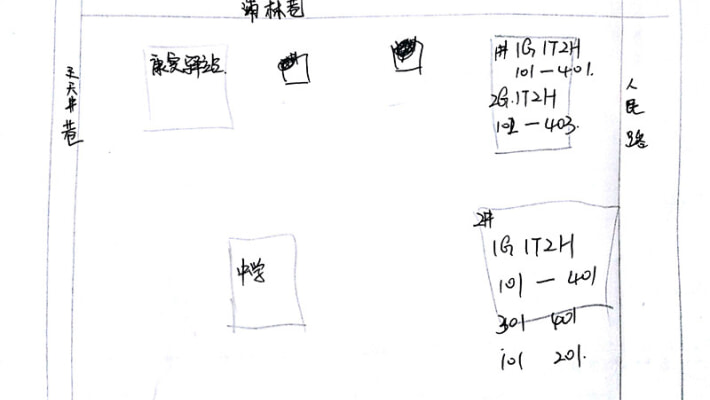 蒲林巷
康复驿站
1# 1G 1T2H
101 — 401.
2G.1T2H
101 — 403.
王天井巷
人民路
中学
2#
1G 1T2H
101 — 401
301 401
101 201.